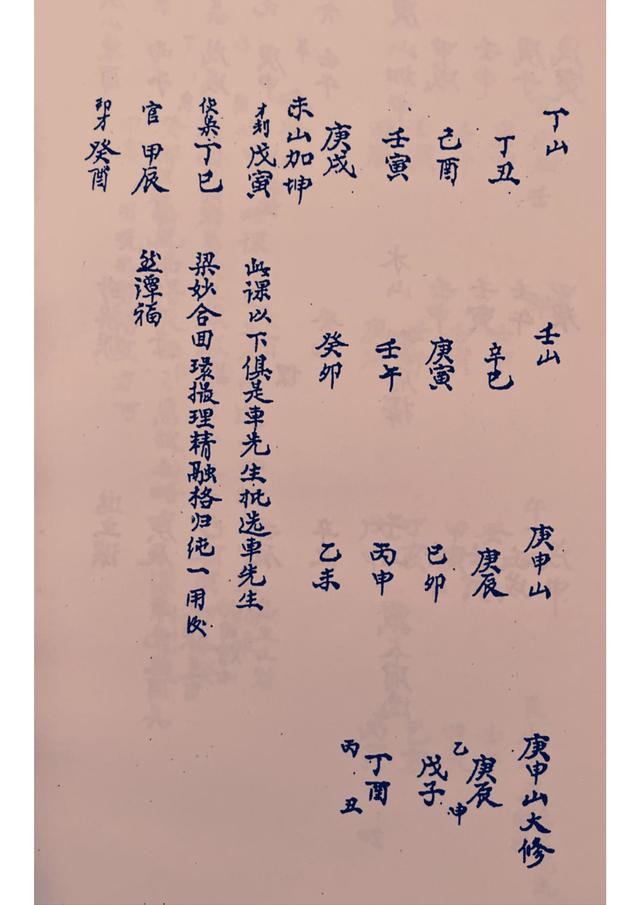 丁山
丁丑
己酉
壬寅
庚戌
未山加坤
才利戊寅
丁巳
官甲辰
印才癸酉
壬山
辛巳
庚寅
壬午
癸卯
庚申山
庚辰
巳卯
丙申
乙未
庚申山大修
庚辰
乙申
戊子
丁酉
丙丑
此课以下俱是车先生批选车先生
梁妙合回環撮理精融格归纯一用以
然谭福